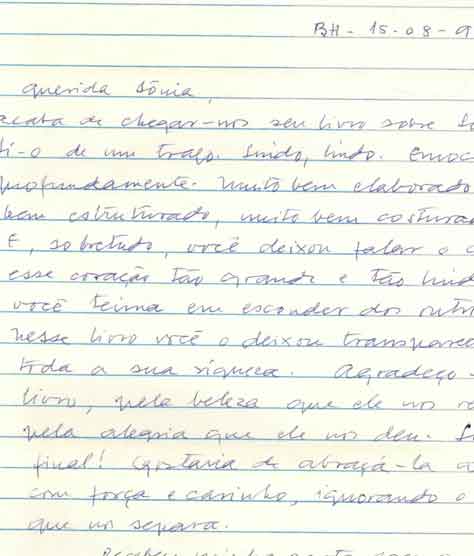 BH - 15-08-9
Querida Sônia,
acaba de chegar-nos seu livro sobre
li-o de um traço. Lindo, lindo. Emoc
profundamente. Muito bem elaborado
bem estruturado, muito bem costurad
E, sobretudo, você deixou falar o c
esse coração tão grande e tão lind
você teima em esconder dos outro
nesse livro você o deixou transparec
toda a sua riqueza. Agradeço-
livro, pela beleza que ele nos re
pela alegria que ele nos deu.
final! Gostaria de abraçá-la
com força e carinho, ignorando o
que nos separa.